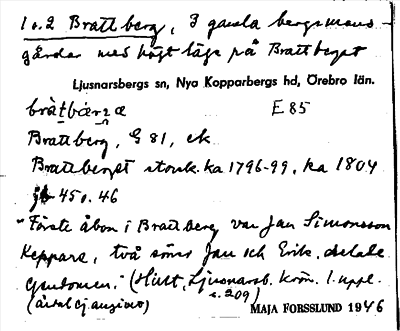 1 o. 2 Brattberg, 3 gamla bergsmans-
gårdar med högt läge på Brattberget
Ljusnarsbergs sn, Nya Kopparbergs hd, Örebro län.
E 85
Brattberg, G 81, ek
Brattberget storsk. ka 1796-99, ka 1804
45 o. 46
"Förste åbon i Brattberg var Jan Simonsson
Keppare, två söner Jan och Erik, delade
egendomen." (Hult, Ljusnarsb. krön. 1. uppl.
s. 209)
(årtal ej angivet)
MAJA FORSSLUND 1946